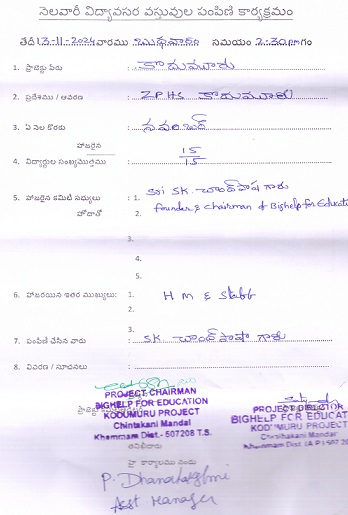 నెలవారీ విద్యావసర వస్తువుల పంపిణి కార్యక్రమం
తేదీ 13-11-2024 వారము బుధవారం సమయం 2:30 గం
1. ప్రాజెక్టు పేరు : కొదుమూరు
2. ప్రదేశము / ఆవరణ : ZPHS కొదుమూరు
3. ఏ నెల కొరకు : నవంబర్
హాజరైన
4. విద్యార్థుల సంఖ్య/మొత్తము : 15/15
5. హాజరైన కమిటి సభ్యులు : 1. Sri SK. చాంద్ పాషా గారు
హోదాతో 2. founder & chairman of Bighelp for Educati
3.
4.
5.
6. హాజరయిన ఇతర ముఖ్యులు: 1. H M & Staff
2.
3.
7. పంపిణి చేసిన వారు : SK. చాంద్ పాషా గారు
8. వివరణ / సూచనలు :
PROJECT CHAIRMAN
BIGHELP FOR EDUCATION
KODUMURU PROJECT
Chintakani Mandal
Khammam Dist.- 507208 T.S.
PROJECT DIRECTOR
BIGHELP FOR EDUCAT
KODUMURU PROJECT
Chintakani Mandal
Khammam Dist.
హై కార్యాలయము నందు
P. Dhanalaxmi
Asst Manager